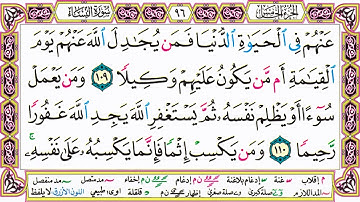 الجزء الخامس ٩٦ سورة النساء
عَنْهُمْ فِي الْحَيَوٰةِ الدُّنْيَا فَمَن يُجَادِلُ اللَّهَ عَنْهُمْ يَوْمَ
الْقِيَامَةِ أَم مَّن يَكُونُ عَلَيْهِمْ وَكِيلًا ١٠٩ وَمَن يَعْمَلْ
سُوءًا أَوْ يَظْلِمْ نَفْسَهُ ثُمَّ يَسْتَغْفِرِ اللَّهَ يَجِدِ اللَّهَ غَفُورًا
رَّحِيمًا ١١٠ وَمَن يَكْسِبْ إِثْمًا فَإِنَّمَا يَكْسِبُهُ عَلَىٰ نَفْسِهِ ۚ